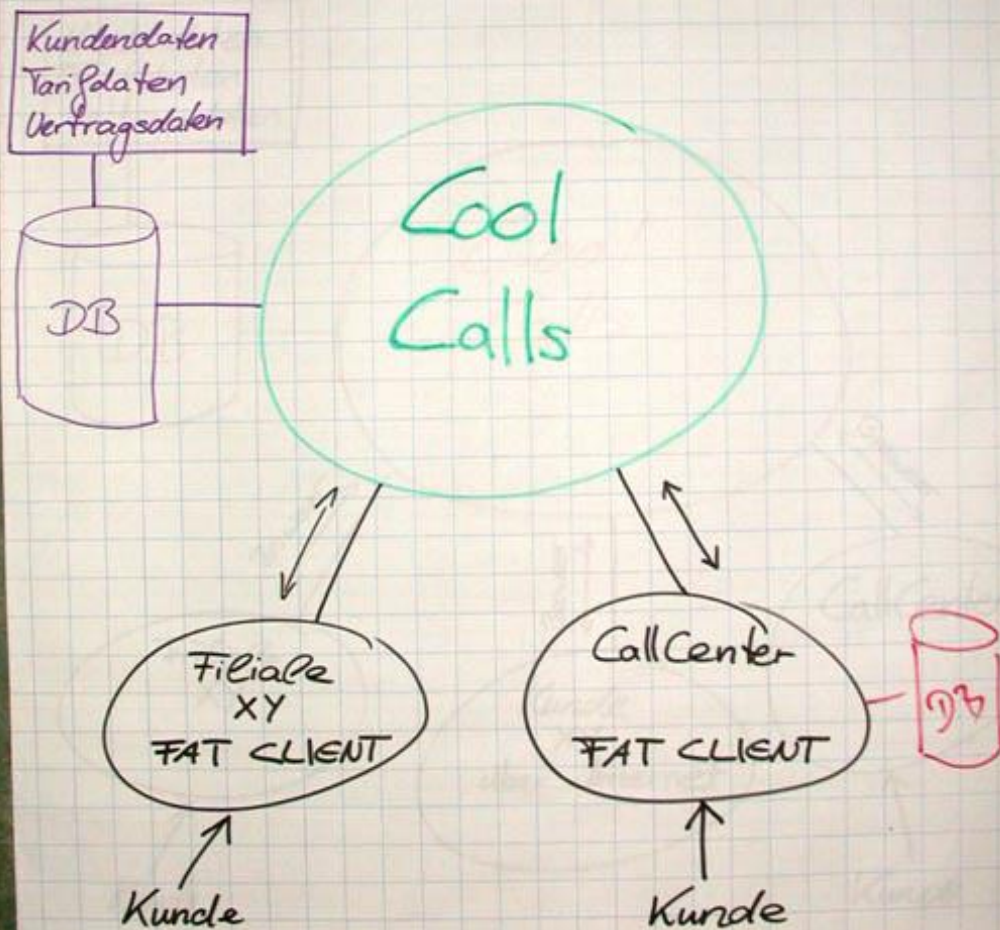 Kundendaten
Tarifdaten
Vertragsdaten
DB
Cool
Calls
Filiale
XY
FAT CLIENT
CallCenter
FAT CLIENT
DB
Kunde
Kunde
CallCenter
Kunde